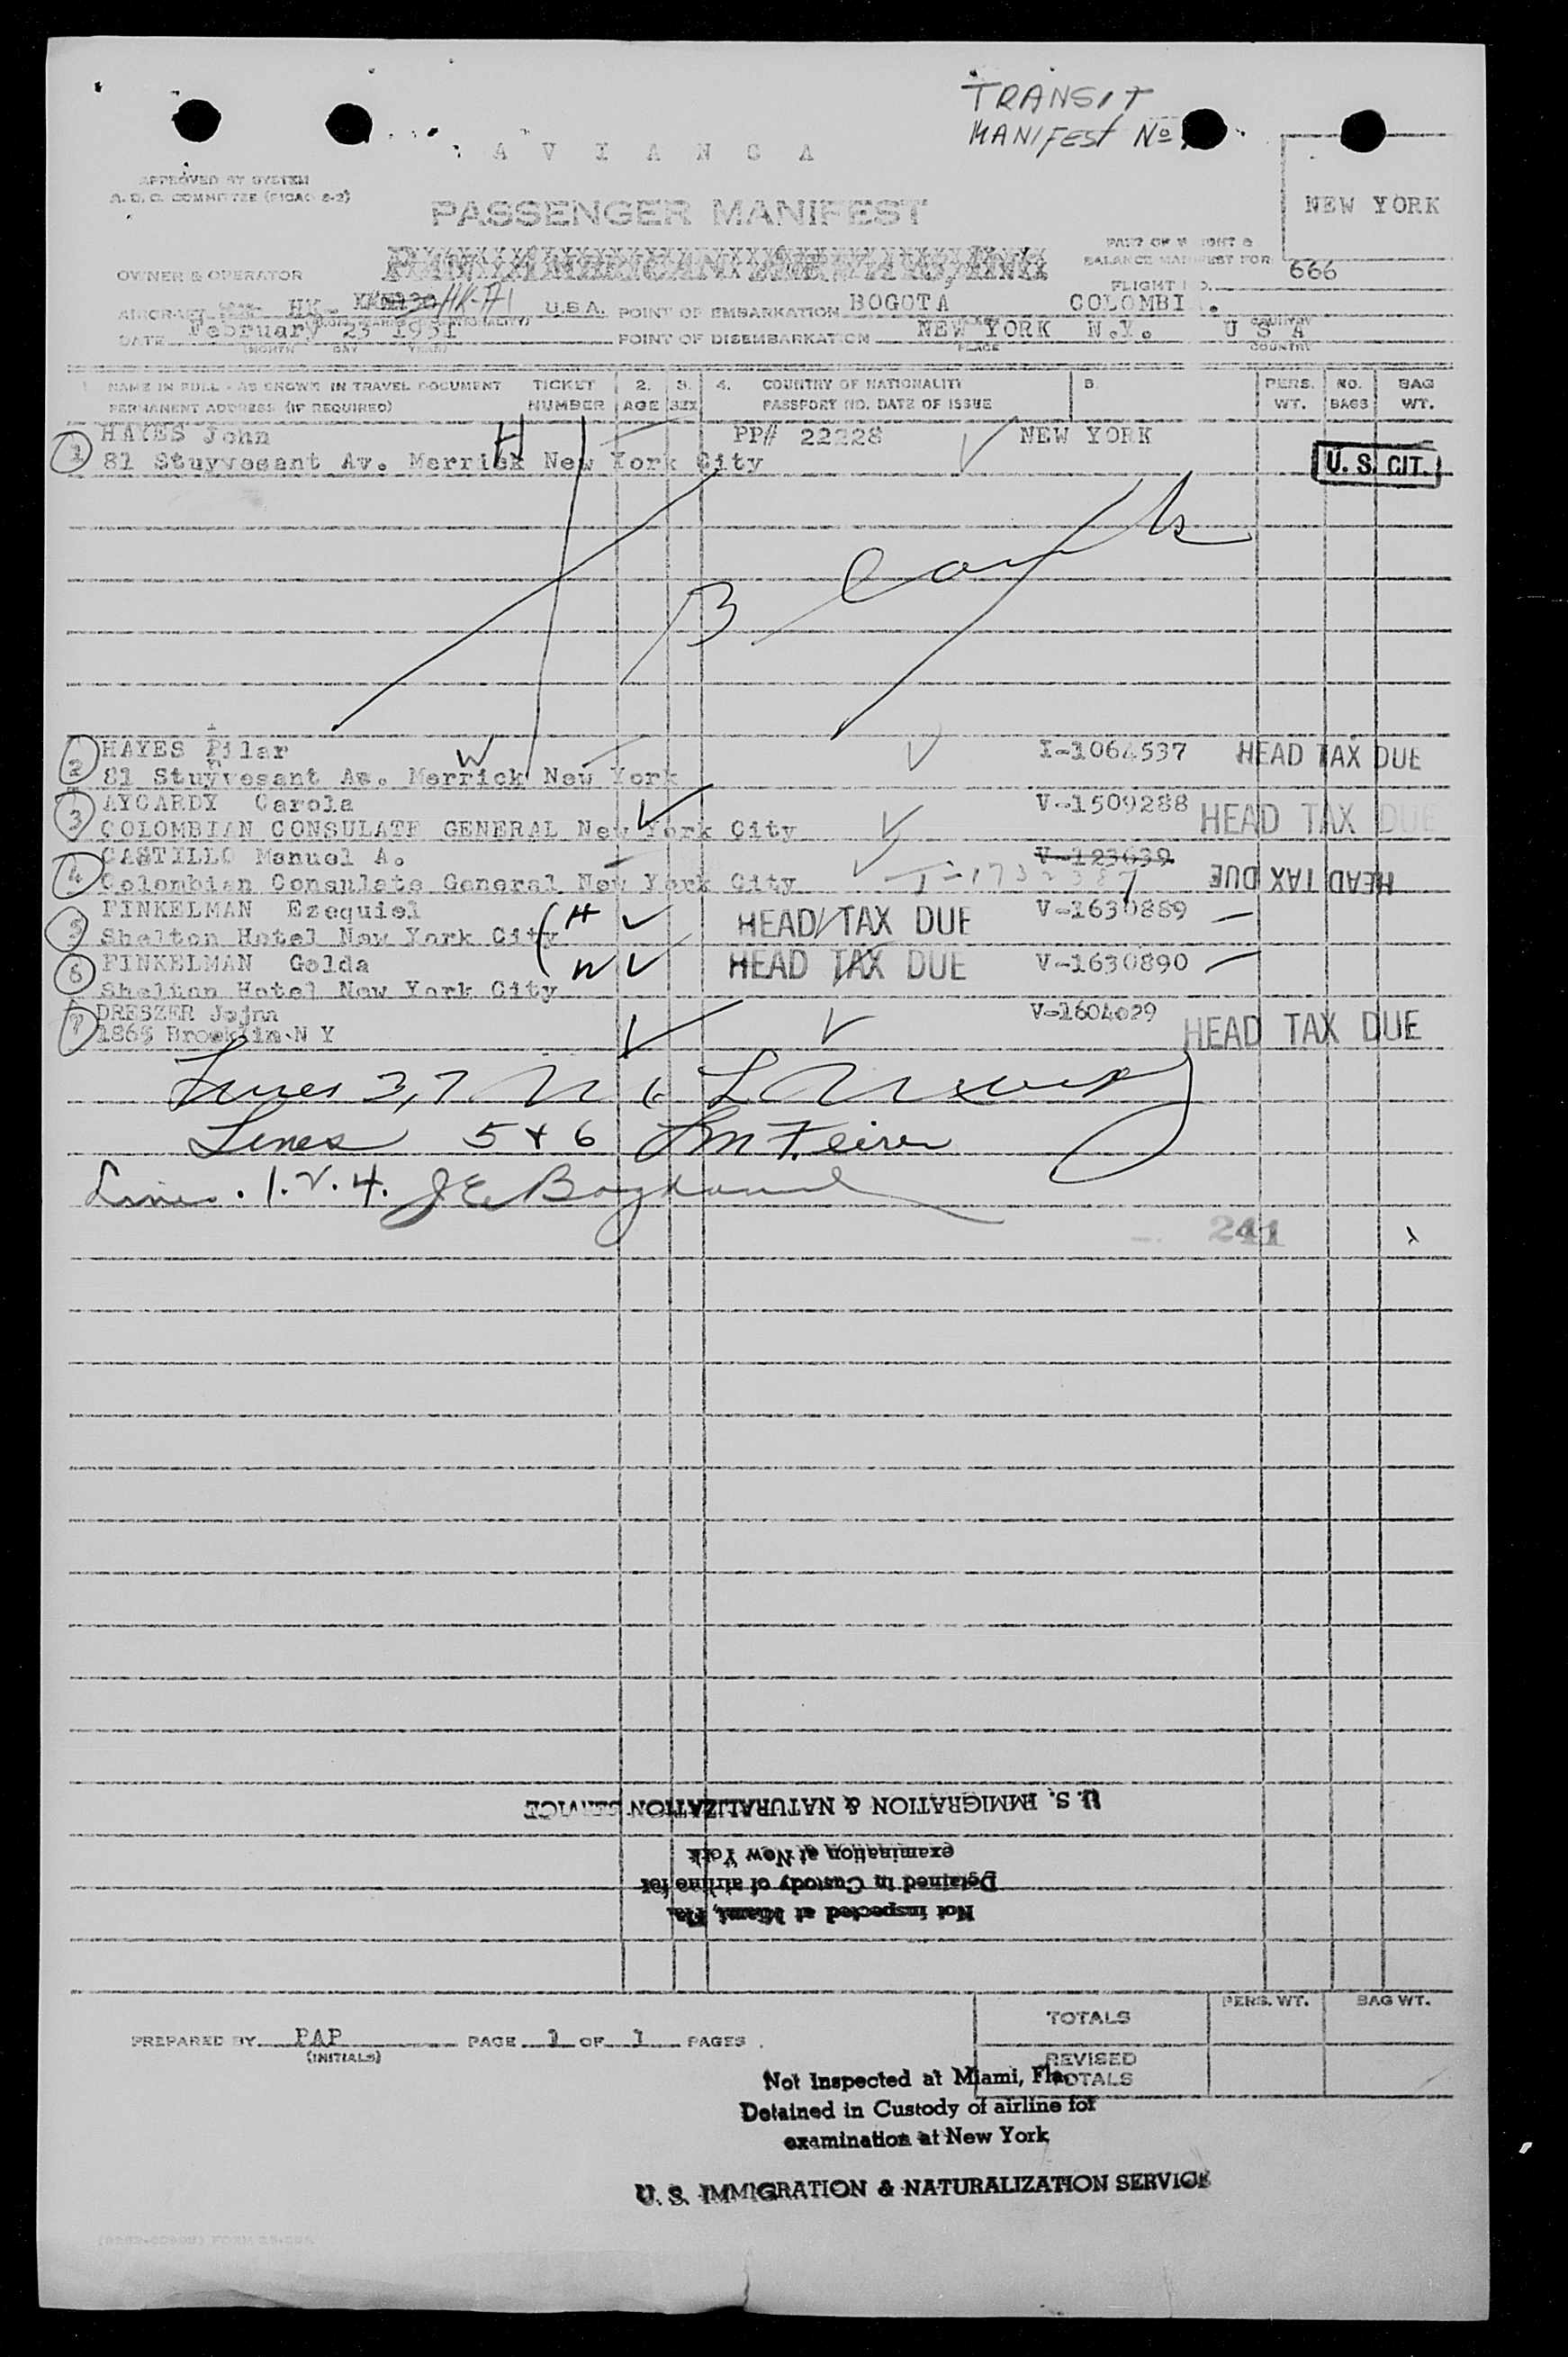 TRANSIT
MANIFEST No
A V I A N C A
APPROVED BY SYSTEM
PASSENGER MANIFEST
NEW YORK
OWNER & OPERATOR
PART OF WEIGHT &
BALANCE MANIFEST FOR
FLIGHT NO. 666
AIRCRAFT HK- HK-A1 U.S.A. POINT OF EMBARKATION BOGOTA COLOMBIA.
DATE February 23 1951 POINT OF DISEMBARKATION NEW YORK N.Y. U S A
(MONTH DAY YEAR) PLACE COUNTRY
1 NAME IN FULL - AS SHOWN IN TRAVEL DOCUMENT TICKET 2. 3. 4. COUNTRY OF NATIONALITY 5. PERS. NO. BAG
PERMANENT ADDRESS (IF REQUIRED) NUMBER AGE SEX PASSPORT NO. DATE OF ISSUE WT. BAGS WT.
1 HAYES John H PP# 22228 NEW YORK
81 Stuyvesant Av. Merrick New York City U. S. CIT.
Blank
2 HAYES Pilar W I-1064537 HEAD TAX DUE
81 Stuyvesant Av. Merrick New York
3 AYCARDY Carola V-1509288 HEAD TAX DUE
COLOMBIAN CONSULATE GENERAL New York City
4 CASTILLO Manuel A. V-123639 HEAD TAX DUE
Colombian Consulate General New York City
5 FINKELMAN Ezequiel H HEAD TAX DUE V-1630889
Shelton Hotel New York City
6 FINKELMAN Golda W HEAD TAX DUE V-1630890
Shelton Hotel New York City
7 DRESZER Jojna V-1604029 HEAD TAX DUE
1865 Brooklin N Y
Lines 3,7
Lines 5 + 6
Lines . 1. 2. 4. J E
241
U. S. IMMIGRATION & NATURALIZATION SERVICE
examination at New York
Detained in Custody of airline for
Not inspected at Miami, Fla.
PREPARED BY PAP PAGE 1 OF 1 PAGES
(INITIALS)
TOTALS PERS. WT. BAG WT.
REVISED
TOTALS
Not Inspected at Miami, Fla.
Detained in Custody of airline for
examination at New York
U. S. IMMIGRATION & NATURALIZATION SERVICE